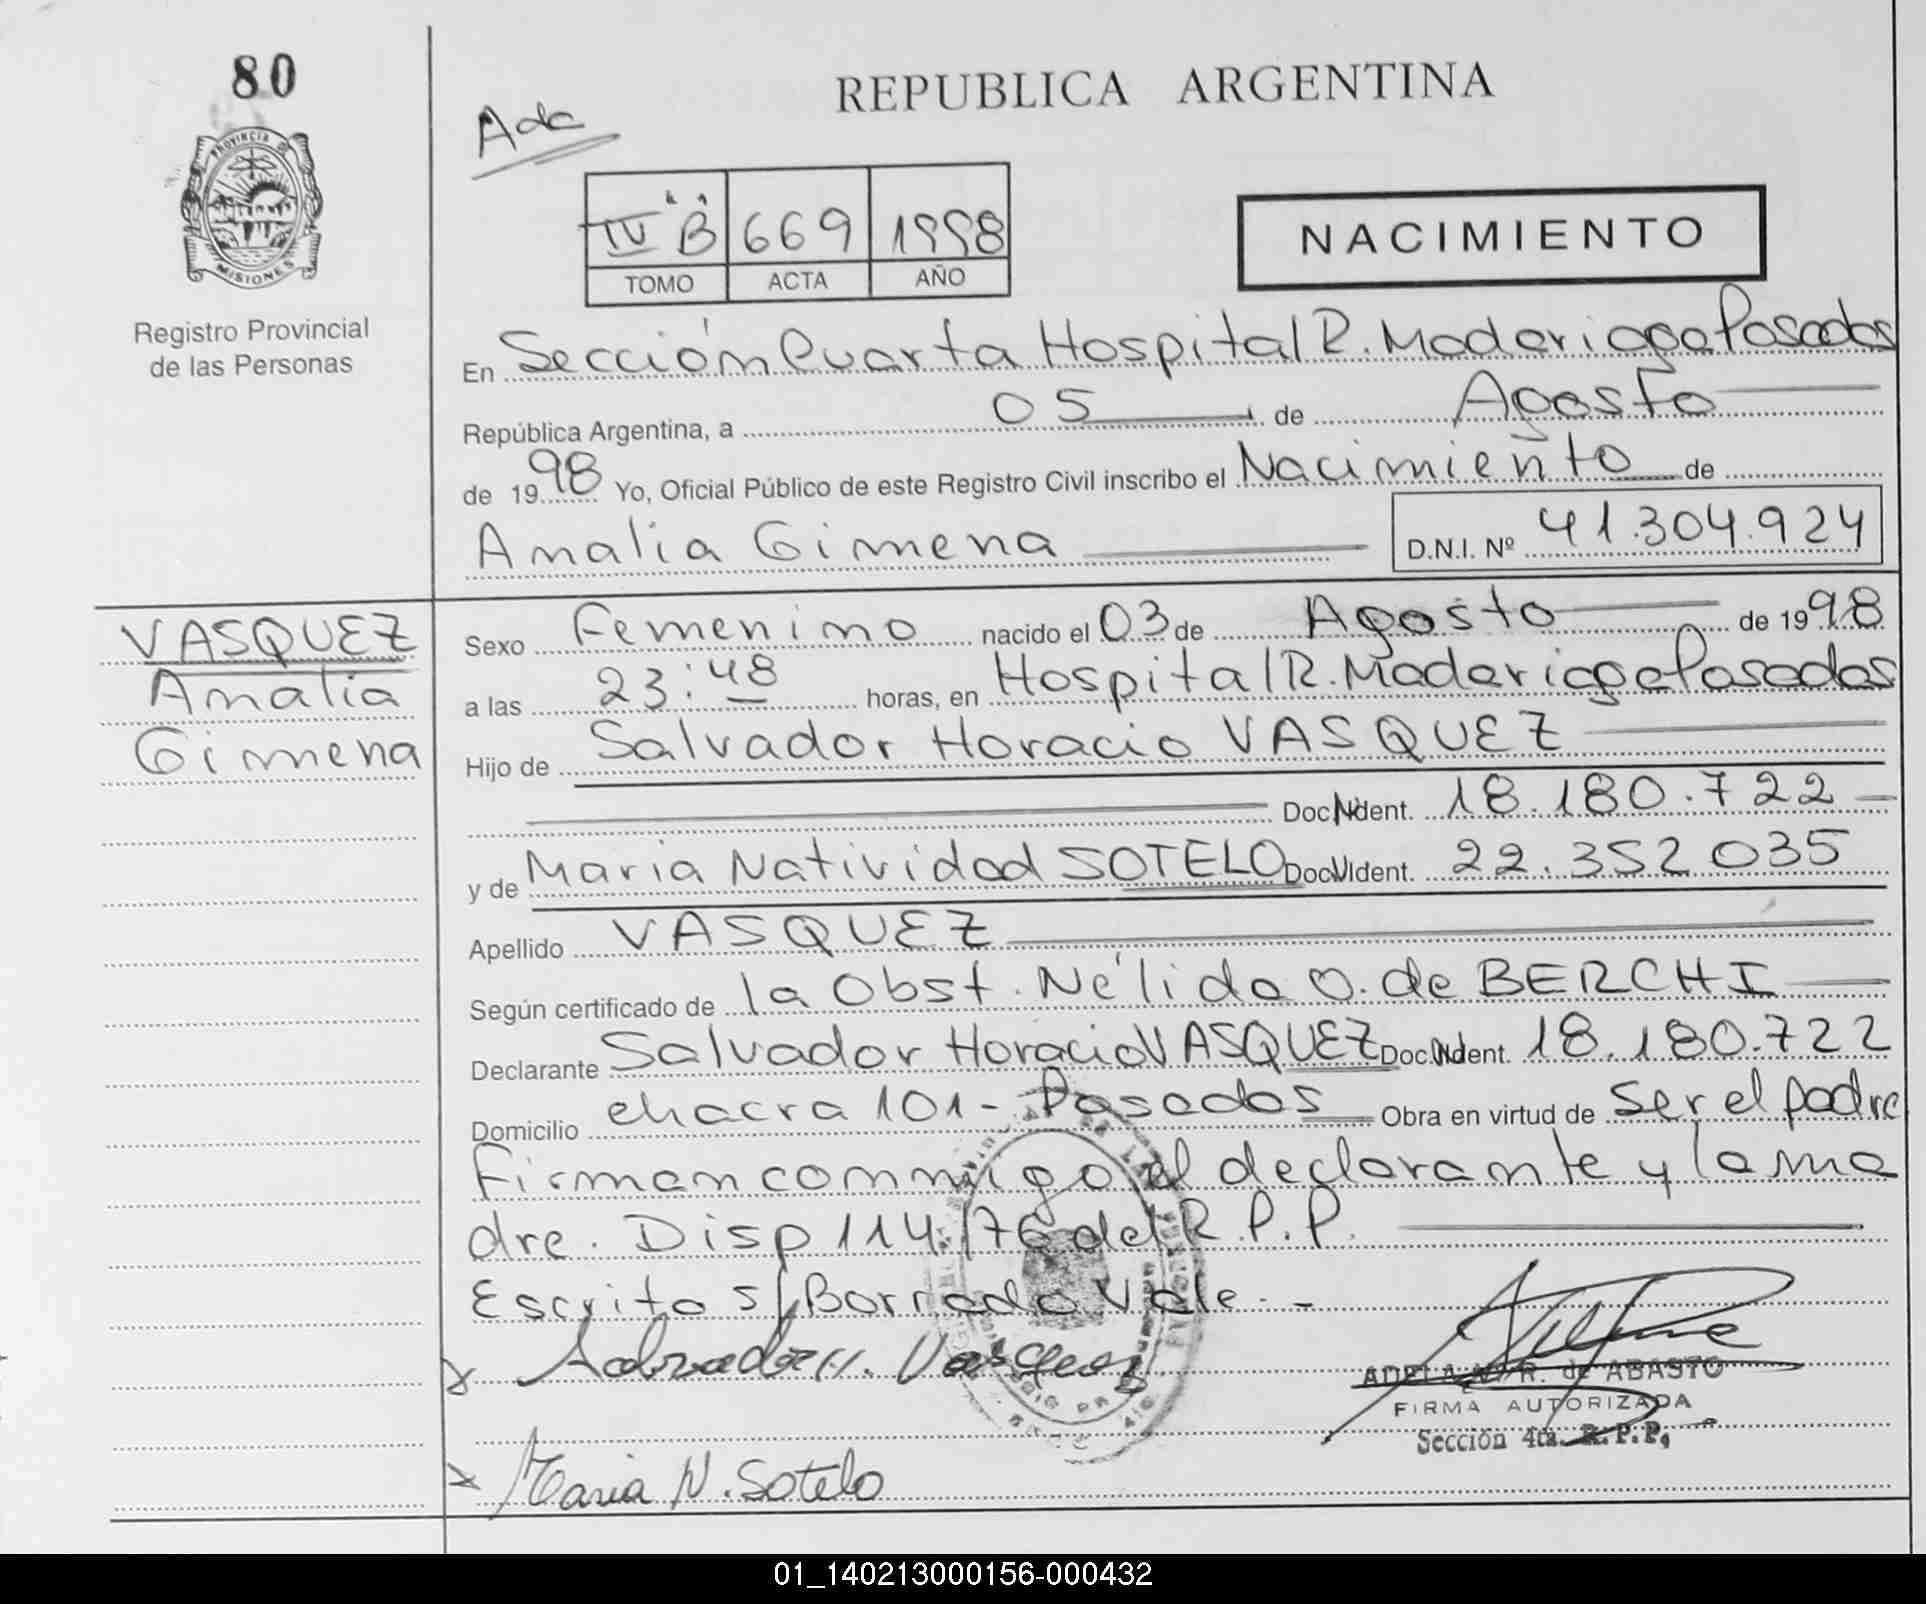 80
REPUBLICA ARGENTINA
Ada
PROVINCIA DE
MISIONES
Registro Provincial
de las Personas
IV "B" 669 1998
TOMO ACTA AÑO
NACIMIENTO
En Sección Cuarta Hospital R. Madariaga Posadas
República Argentina, a 05 de Agosto
de 1998 Yo, Oficial Público de este Registro Civil inscribo el Nacimiento de
Amalia Gimena D.N.I. Nº 41.304.924
VASQUEZ
Amalia
Gimena
Sexo Femenino nacido el 03 de Agosto de 1998
a las 23:48 horas, en Hospital R. Madariaga Posadas
Hijo de Salvador Horacio VASQUEZ
Doc. Ident. 18.180.722
y de Maria Natividad SOTELO Doc. Ident. 22.352035
Apellido VASQUEZ
Según certificado de la Obst. Nélida O. de BERCHI
Declarante Salvador Horacio VASQUEZ Doc. Ident. 18.180.722
Domicilio chacra 101 - Posadas Obra en virtud de ser el padre
Firman conmigo el declarante y la ma
dre. Disp 114/76 del R.P.P.
Escrito s/Borrado Vale.-
Salvador H. Vasquez
ADELA R. de ABASTO
FIRMA AUTORIZADA
Sección 4ta. R.P.P.
Maria N. Sotelo
01_140213000156-000432